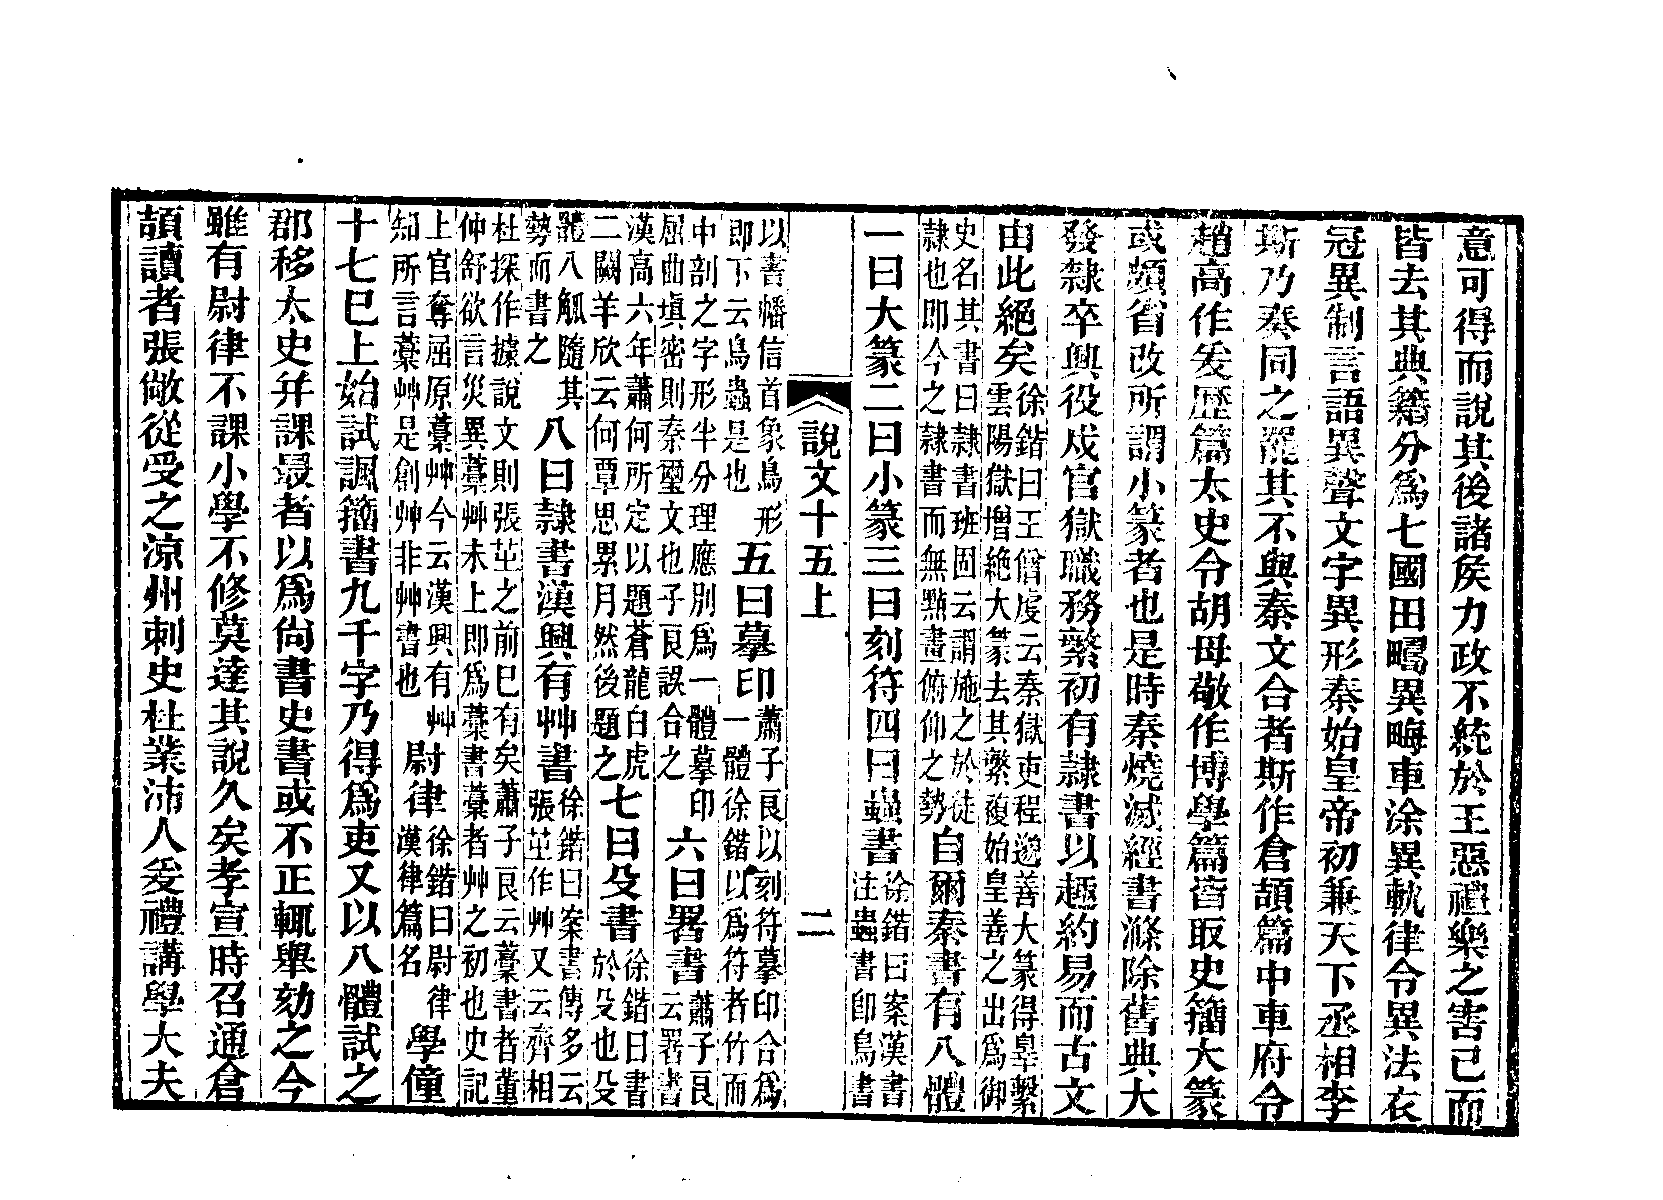 意可得而說其後諸矦力政不統於王惡禮樂之害己而
皆去其典籍分爲七國田疇異畮車涂異軌律令異法衣
冠異制言語異聲文字異形秦始皇帝初兼天下丞相李
斯乃奏同之罷其不與秦文合者斯作倉頡篇中車府令
趙高作爰歷篇太史令胡母敬作博學篇皆取史籒大篆
或頗省改所謂小篆者也是時秦燒滅經書滌除舊典大
發隸卒興役戍官獄職務繁初有隸書以趣約易而古文
由此絕矣徐鍇曰王僧虔云秦獄吏程邈善大篆得辠繫雲陽獄增絕大篆去其繁複始皇善之出爲御
史名其書曰隸書班固云謂施之於徒隸也即今之隸書而無點畫俯仰之勢自爾秦書有八體
一曰大篆二曰小篆三曰刻符四曰蟲書徐鍇曰案漢書注蟲書即鳥書
說文十五上 二
以書幡信首象鳥形即下云鳥蟲是也五曰摹印蕭子良以刻符摹印合爲一體徐鍇以爲符者竹而
中剖之字形半分理應別爲一體摹印屈曲塡密則秦璽文也子良誤合之六曰署書蕭子良云署書
漢高六年蕭何所定以題蒼龍白虎二闕羊欣云何覃思累月然後題之七曰殳書徐鍇曰書於殳也殳
體八觚隨其勢而書之八曰隸書漢興有艸書徐鍇曰案書傳多云張芝作艸又云齊相
杜探作據說文則張芝之前已有矣蕭子良云藁書者董仲舒欲言災異藁艸未上即爲藁書藁者艸之初也史記
上官奪屈原藁艸今云漢興有艸知所言藁艸是創艸非艸書也尉律徐鍇曰尉律漢律篇名學僮
十七已上始試諷籒書九千字乃得爲吏又以八體試之
郡移太史并課最者以爲尚書史書或不正輒舉劾之今
雖有尉律不課小學不修莫達其說久矣孝宣時召通倉
頡讀者張敞從受之涼州刺史杜業沛人爰禮講學大夫